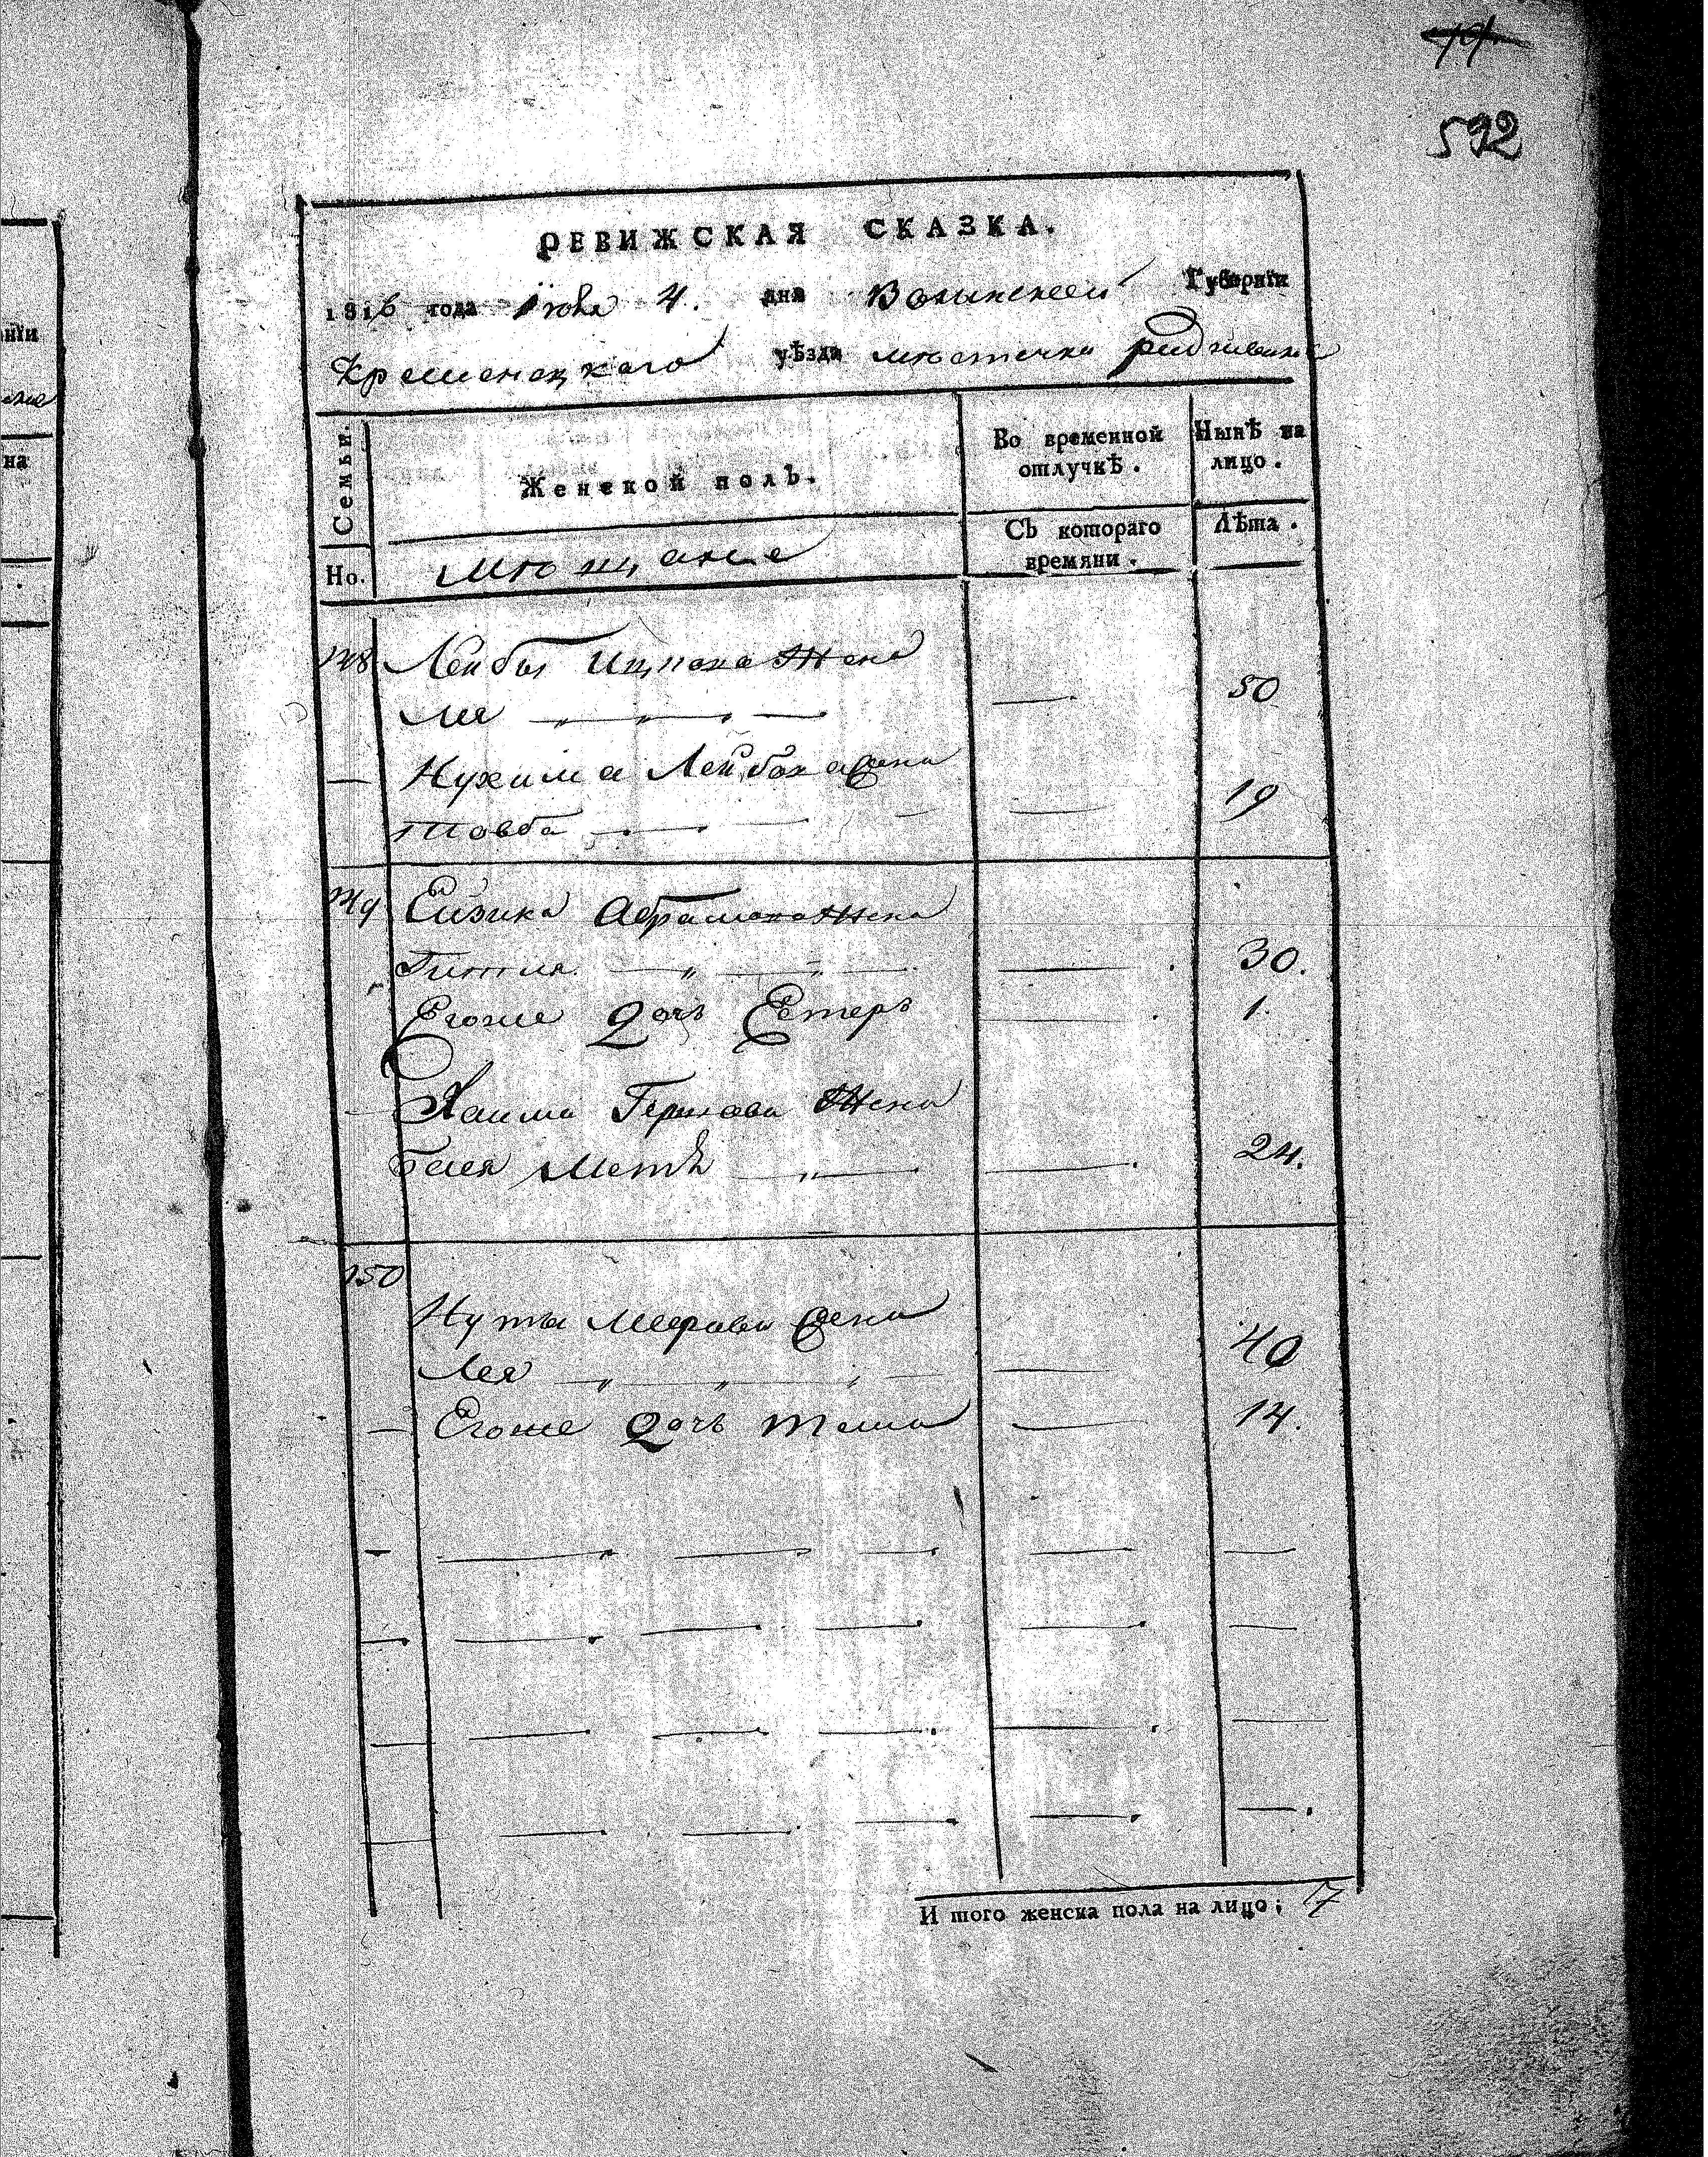 592
РЕВИЖСКАЯ СКАЗКА.
1816 года Iюня 4. дня Волынской Губернїи
Кременецкаго уѣзда мѣстечка Радзивилова
нїи
на
Семьи.
Женской полъ.
Во временной отлучкѣ.
Нынѣ на лицо.
Но.
мѣщане
Съ котораго времяни.
Лѣта.
148 Лейбы Ицкова Жена
Лея — 50
— Нухима Лейбова Жена
Товба — 19
149 Ейзика Абрамова Жена
Гитля — 30.
Егоже Дочь Естеръ — 1.
— Хаима Гершова Жена
Бейля — 24.
150
Нуты Меерова Жена
Лея — 40
— Егоже Дочь — 14.
И того женска пола на лицо; 7